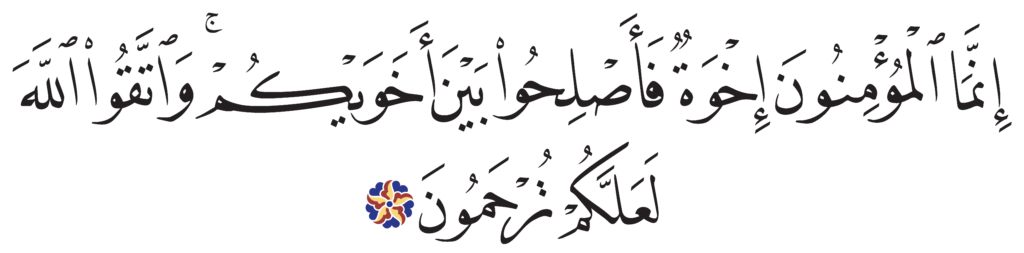 إِنَّمَا ٱلْمُؤْمِنُونَ إِخْوَةٌ فَأَصْلِحُوا۟ بَيْنَ أَخَوَيْكُمْ ۚ وَٱتَّقُوا۟ ٱللَّهَ
لَعَلَّكُمْ تُرْحَمُونَ